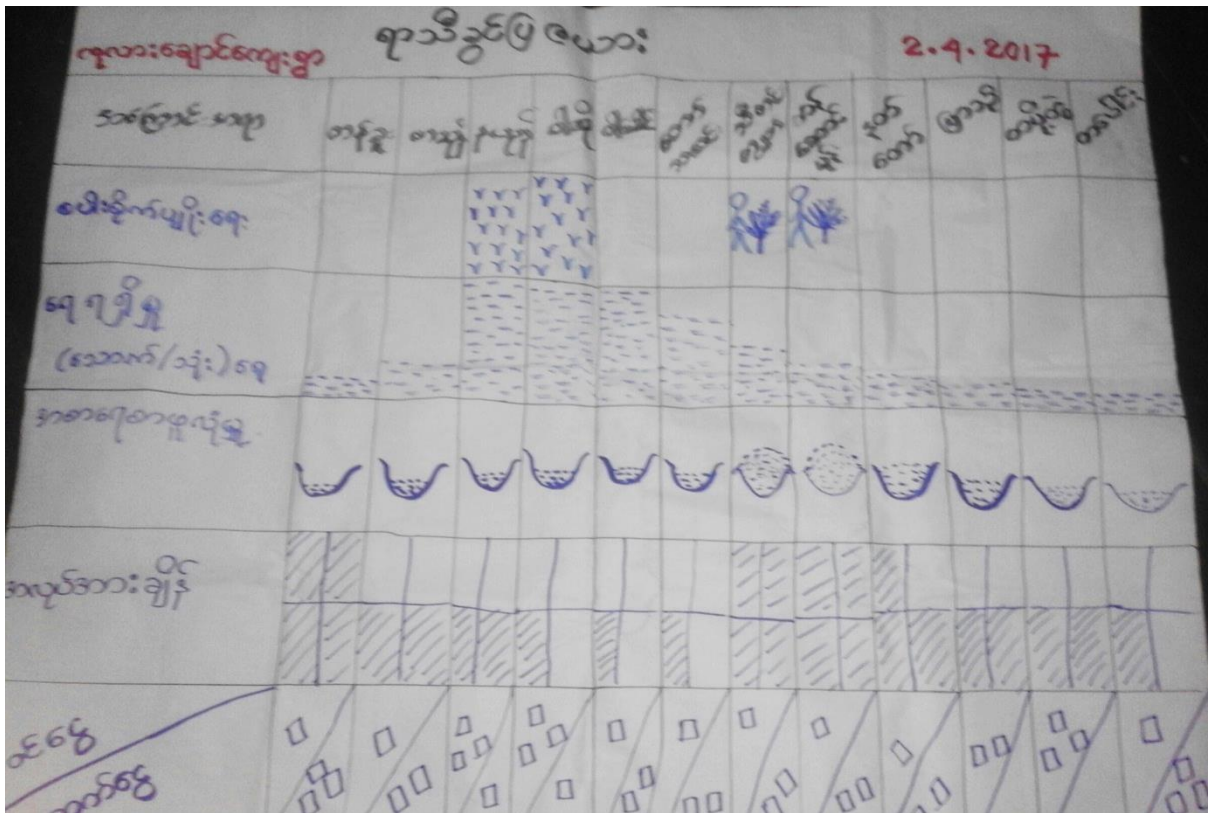 ရာသီခွင်ပြ ဇယား
ကုလားချောင်ကျေးရွာ
2.4.2017
အကြောင်းအရာ
တန်ခူး ကဆုန် နယုန် ဝါဆို ဝါခေါင် တော်သလင်း သီတင်းကျွတ် တန်ဆောင်မုန်း နတ်တော် ပြာသို တပို့တွဲ တပေါင်း
စပါးစိုက်ပျိုးရေး
ရေရရှိမှု
(သောက်/သုံး)ရေ
အစားရေစာဖူလုံမှု
အလုပ်အားချိန်
ဝင်ငွေ
ထွက်ငွေ